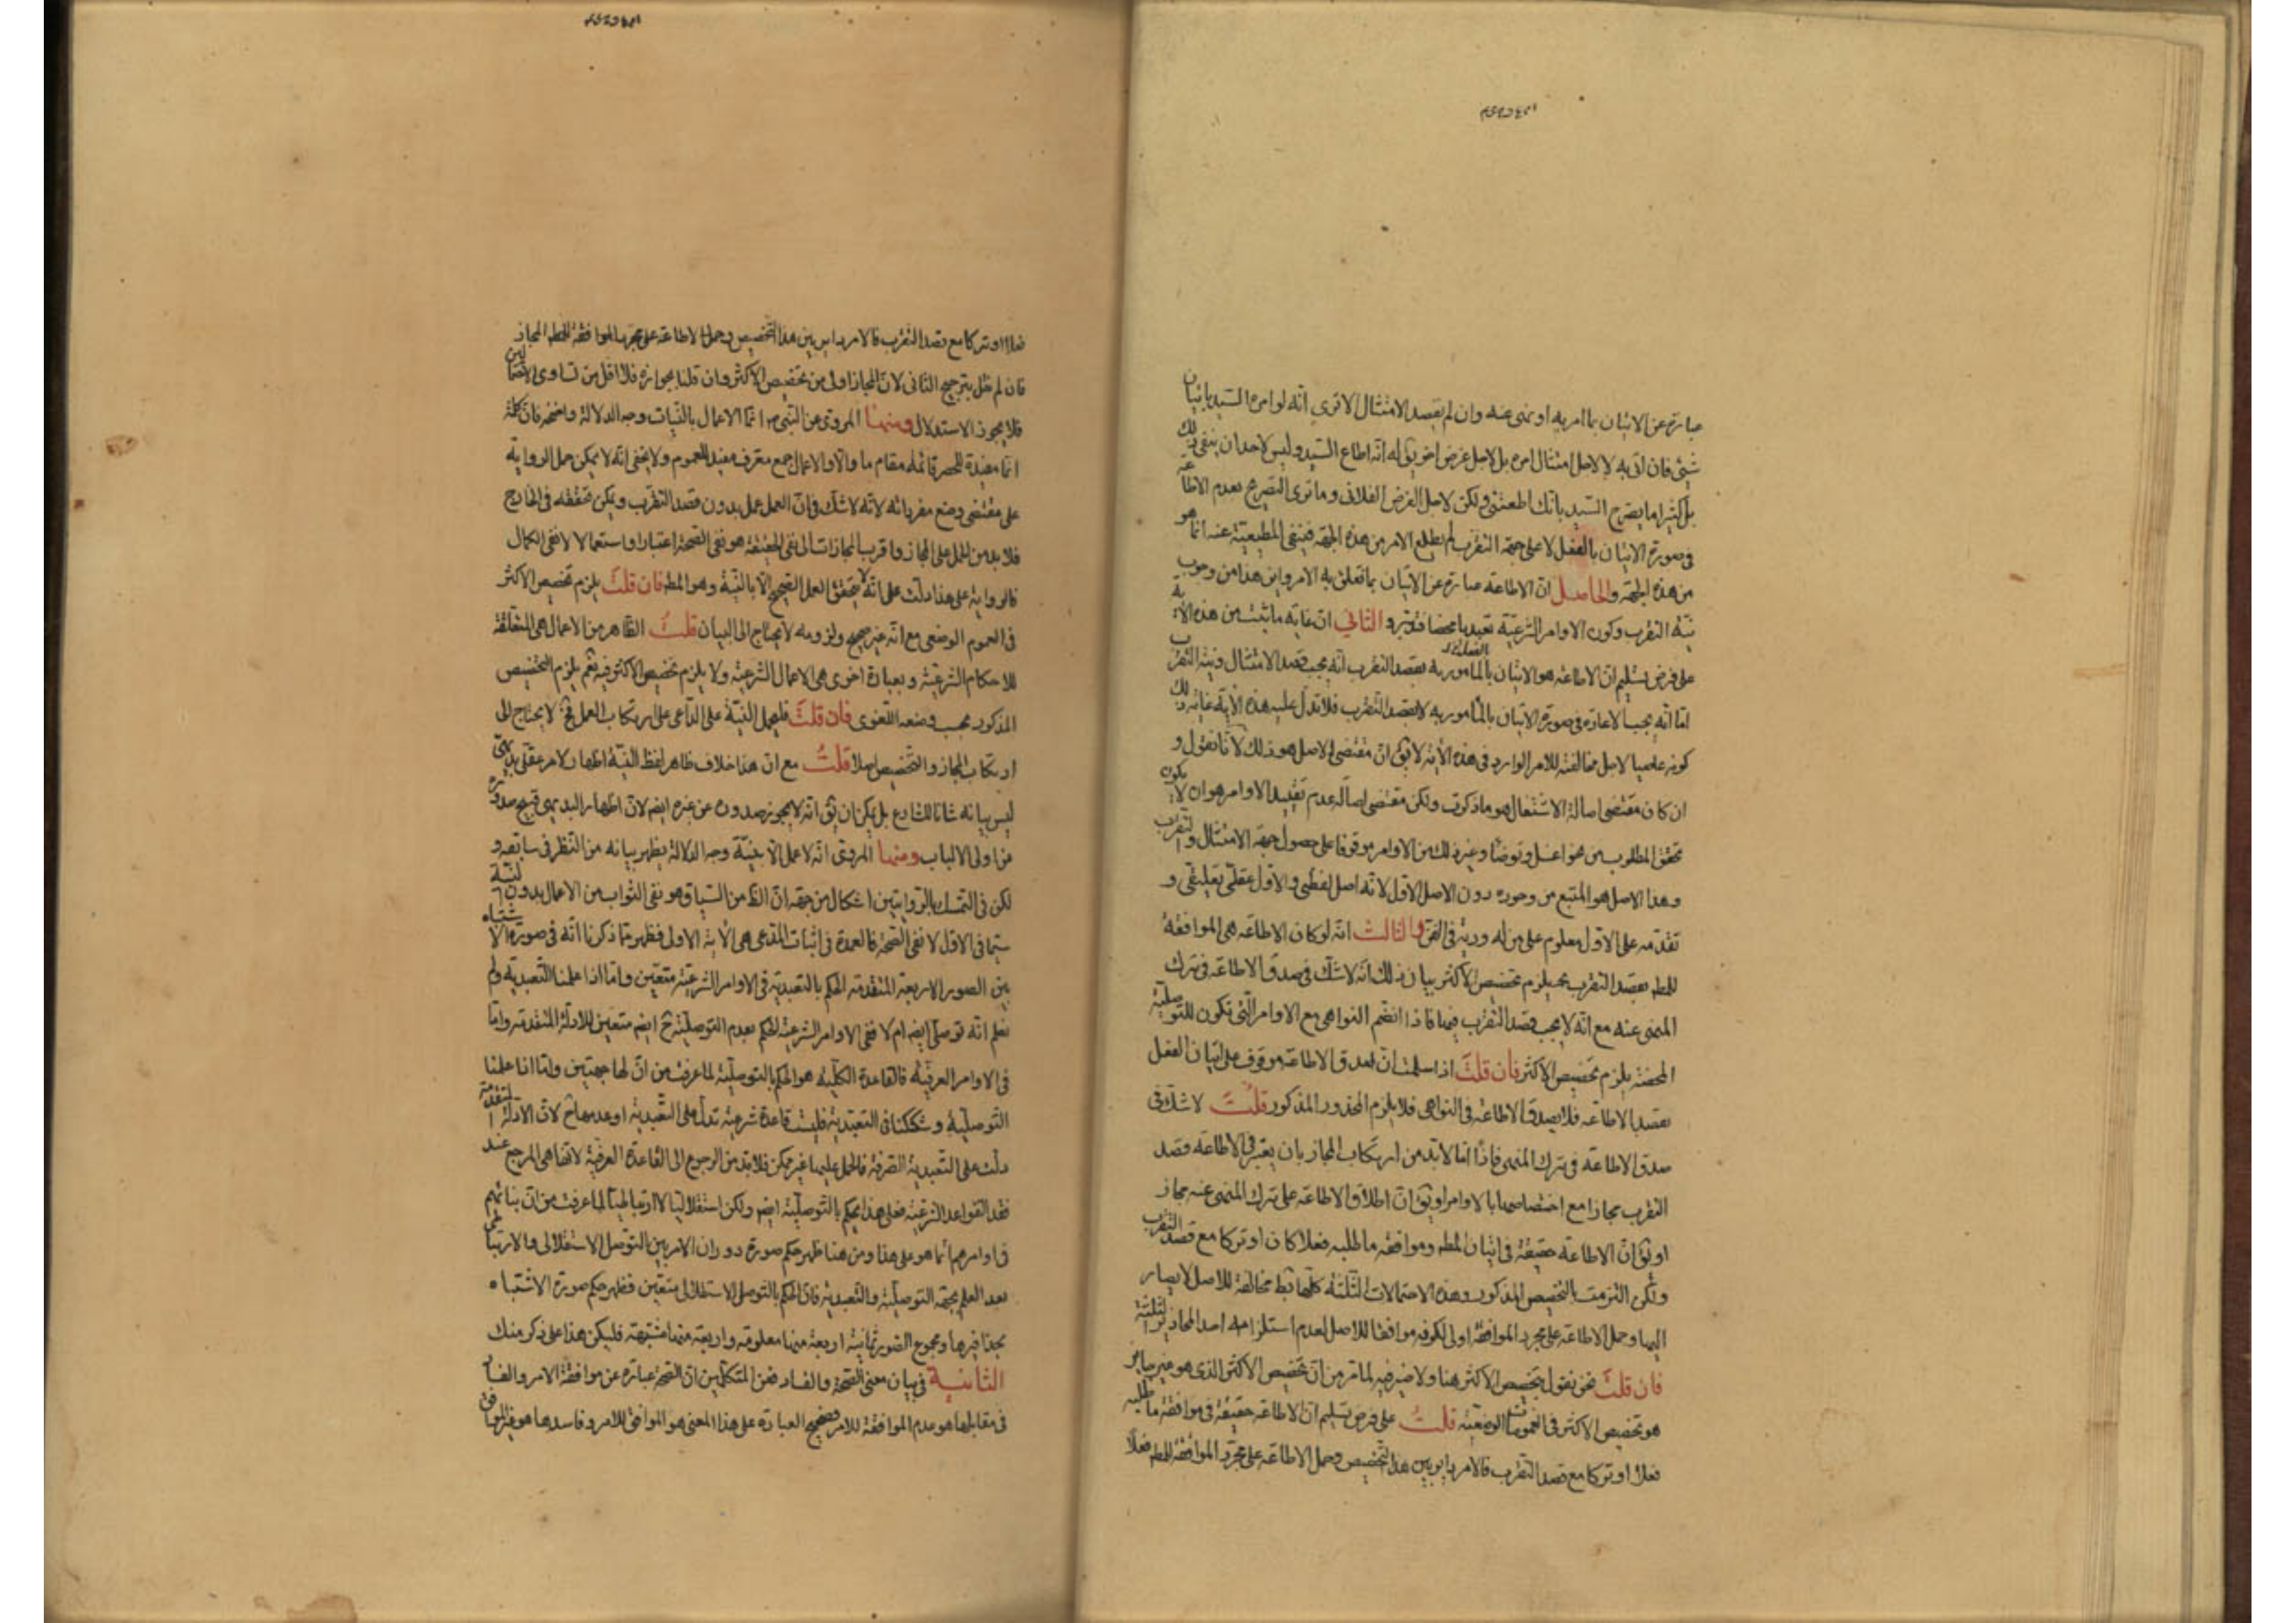 عبارة عن الاتيان بما امر به او نهى عنه وان لم يقصد الامتثال الا ترى انه لو امره السيد باتيان
شيئ فان اتى به لا لاجل امتثال امره بل لاجل غرض اخر يق له انه اطاع السيد وليس لاحد ان ينفى ذلك
بل كثيرا ما يصرح السيد بانك اطعتنى ولكن لاجل الغرض الفلانى وما ترى التصريح بعدم الاطاعة
فى صورة الاتيان بالفعل لا على جهة التقرب لم يطلع الامر من هذه الجهة فينفى المطيعية عنه انما هو
من هذه الجهة والحاصل ان الاطاعة عبارة عن الاتيان بما تعلق به الامر واين هذا من وجوب
نية التقرب وكون الاوامر الشرعية تعبديا محضا فتدبر والثانى ان غاية ما يثبت من هذه الاية
على فرض تسليم ان الاطاعة هو الاتيان بالمامور به بقصد التقرب انه يجب قصد الامتثال ونية التقرب
اما انه يجب الاعادة فى صورة الاتيان بالمأمور به لا بقصد التقرب فلا تدل عليه هذه الاية غاية ذلك
كونه عاصيا لاجل مخالفته للامر الوارد فى هذه الاية لا يق ان مقتضى الاصل هو ذلك لانا نقول و
ان كان مقتضى اصالة الاشتغال هو ما ذكرت ولكن مقتضى اصالة عدم تقييد الاوامر هو ان لا يكون
تحقق المطلوب من هو اغسل وتوضأ وغير ذلك من الاوامر موقوفا على حصول جهة الامتثال والتقرب
وهذا الاصل هو المتبع من وجوده دون الاصل الاول لانه اصل لفظى والاول عقلى تعليقى و
تقدمه على الاول معلوم على من له دربة فى الفن والثالث انه لو كان الاطاعة هى الموافقة
للمط بقصد التقرب يلزم تخصيص الاكثر بيان ذلك انه لا شك فى صدق الاطاعة فى ترك
المنهى عنه مع انه لا يجب قصد التقرب فيها فاذا انضم النواهى مع الاوامر التى تكون للتوصلية
المحضة يلزم تخصيص الاكثر فان قلت اذا سلمت ان صدق الاطاعة موقوف على اتيان الفعل
بقصد الاطاعة فلا يصدق الاطاعة فى النواهى فلا يلزم المحذور المذكور قلت لا شك فى
صدق الاطاعة فى ترك المنهى فاذا اما لابد من ارتكاب المجاز بان يعتبر فى الاطاعة قصد
التقرب مجازا مع اختصاصها بالاوامر او يق ان اطلاق الاطاعة على ترك المنهى عنه مجاز
او يق ان الاطاعة حقيقة فى اتيان المط وموافقة ما طلبه فعلا كان او تركا مع قصد التقرب
ولكن التزمت بالتخصيص المذكور وهذه الاحتمالات الثلثة كلها مخالفة للاصل لا يصار
اليها وحمل الاطاعة على مجرد الموافقة اولى لكونه موافقا للاصل لعدم استلزامه احد المحاذير الثلثة
فان قلت نحن نقول بتخصيص الاكثر هنا ولا ضير فيه لما مر من ان تخصيص الاكثر الذى هو غير جايز
هو تخصيص الاكثر فى العمومات الوضعية قلت على فرض تسليم ان الاطاعة حقيقة فى موافقة ما طلبه
فعلا او تركا مع قصد التقرب فالامر داير بين هذا التخصيص وحمل الاطاعة على مجرد الموافقة للمط فعلا
فعلا او تركا مع قصد التقرب فالامر داير بين هذا التخصيص وحمل الاطاعة على مجرد الموافقة للمط المجاز
فان لم نقل بترجيح الثانى لان المجاز اولى من تخصيص الاكثر وان قلنا بجوازه فلا اقل من تساوى الاحتمالين
فلا يجوز الاستدلال ومنها المروى عن النبى ص انما الاعمال بالنيات وجه الدلالة واضحة فان كلمة
انما مفيدة للحصر قائمة مقام ما والا والاعمال جمع معرف مفيد للعموم ولا يخفى انه لا يمكن حمل الرواية
على مقتضى وضع مفرداته لانه لا شك فى ان العمل عمل بدون قصد التقرب ويمكن تحققه فى الخارج
فلابد من الحمل على المجاز واقرب المجازات الى نفى الحقيقة هو نفى الصحة اعتبارا واستعمالا لا نفى الكمال
فالرواية على هذا دلت على انه لا يتحقق العمل الصحيح الا بالنية وهو المط فان قلت يلزم تخصيص الاكثر
فى العموم الوضعى مع انه غير صحيح ولزومه لا يحتاج الى البيان قلت الظاهر من الاعمال هى المتعلقة
للاحكام الشرعية وبعبارة اخرى هى الاعمال الشرعية ولا يلزم تخصيص الاكثر فيه نعم يلزم التخصيص
المذكور بحسب وضعه اللغوى فان قلت فليحمل النية على الداعى على ارتكاب العمل فح لا يحتاج الى
ارتكاب المجاز والتخصيص اصلا قلت مع ان هذا خلاف ظاهر لفظ النية اظهار لامر عقلى بديهى
ليس بيانه شانا للشارع بل يمكن ان يق انه لا يجوز صدوره عن غيره ايضا لان اظهار البديهى قبيح صدوره
من اولى الالباب ومنها المروى انه لا عمل الا بنية وجه الدلالة يظهر بيانه من النظر فى سابقه و
لكن فى التمسك بالروايتين اشكال من جهة ان الظ من السياق هو نفى الثواب من الاعمال بدون النية
سيما فى الاول لا نفى الصحة فالعمدة فى اثبات المدعى هى الاية الاولى فظهر مما ذكرنا انه فى صورة الاشتباه
بين الصور الاربعة المتقدمة الحكم بالتعبدية فى الاوامر الشرعية متعين واما اذا علمنا التعبدية ولم
نعلم انه توصلى ايضا ام لا ففى الاوامر الشرعية الحكم بعدم التوصلية ح ايضا متعين للادلة المتقدمة واما
فى الاوامر العرفية فالقاعدة الكلية هو الحكم بالتوصلية لما عرفت من ان لها جهتين واما اذا علمنا
التوصلية وشككنا فى التعبدية فليست قاعدة شرعية تدل على التعبدية او عدمها ح لان الادلة المتقدمة
دلت على التعبدية الصرفة فالحمل عليها غير ممكن فلابد من الرجوع الى القاعدة العرفية لانها هى المرجع عند
فقد القواعد الشرعية فعلى هذا يحكم بالتوصلية ايضا ولكن استقلاليا لا ارتباطيا لما عرفت من ان بنائهم
فى اوامرهم انما هو على هذا ومن هنا ظهر حكم صورة دوران الامر بين التوصل الاستقلالى والارتباطى
بعد العلم بجهة التوصلية والتعبدية فان الحكم بالتوصلى الاستقلالى متعين فظهر حكم صورة الاشتباه
بحذافيرها ومجموع الصور ثمانية اربعة منها معلومة واربعة منها مشتبهة فليكن هذا على ذكر منك
الثانية فى بيان معنى الصحة والفساد فعن المتكلمين ان الصحة عبارة عن موافقة الامر والفساد
فى مقابلها هو عدم الموافقة للامر فصحيح العبادة على هذا المعنى هو الموافق للامر وفاسدها هو غير الموافق